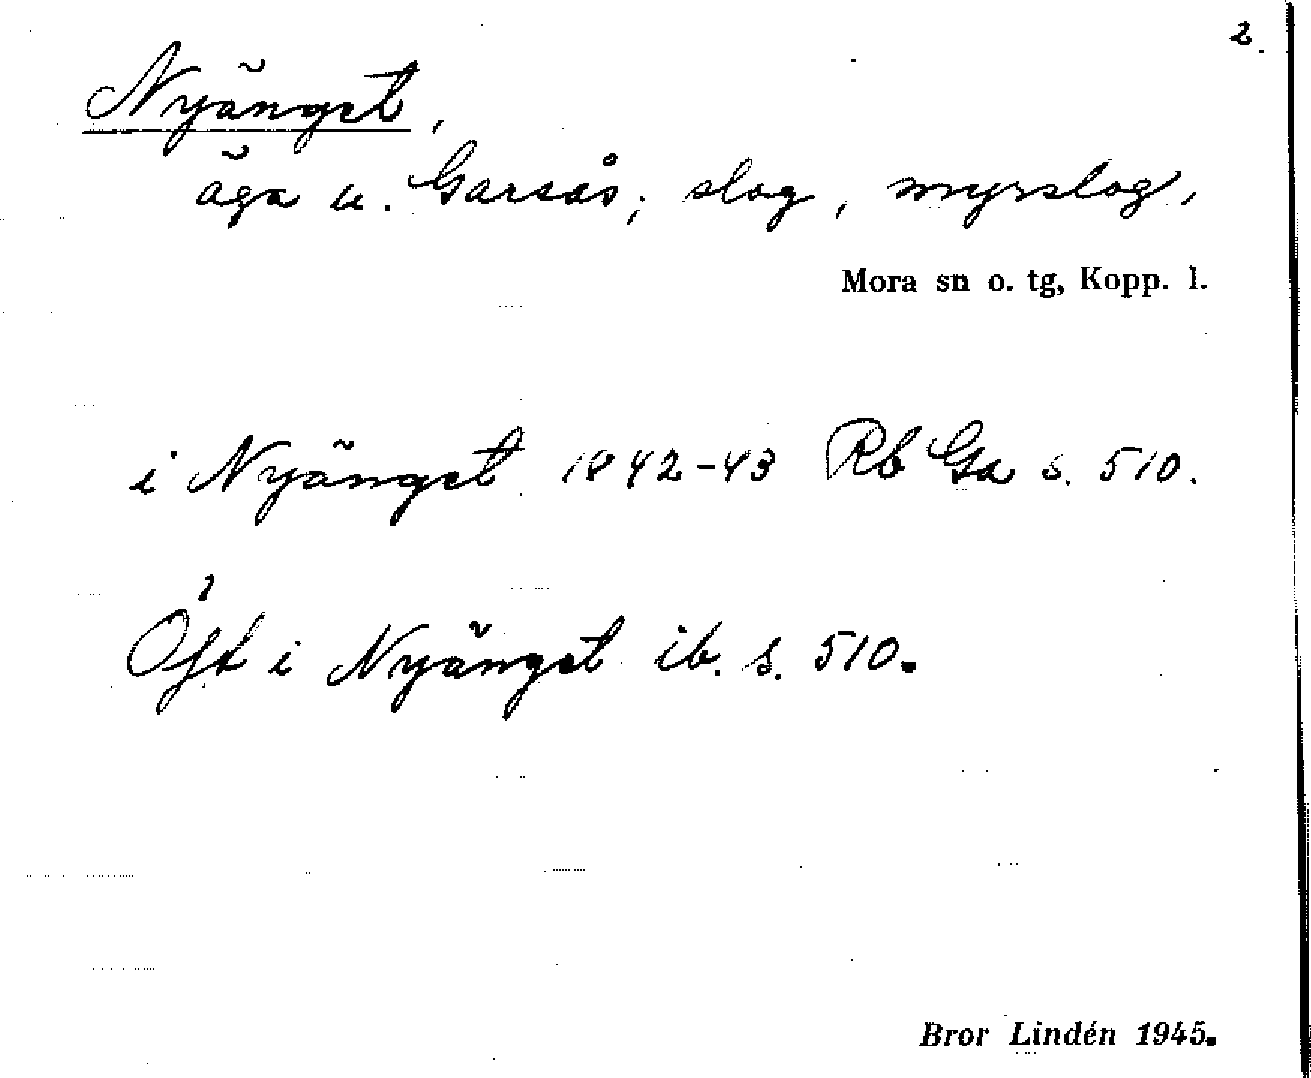 2
Nyänget,
äga u. Garsås; slog, myrslog,
Mora sn o. tg, Kopp. l.
i Nyänget 1842-43 Rb Ga s. 510.
Öfst i Nyänget ib. s. 510.
Bror Lindén 1945.